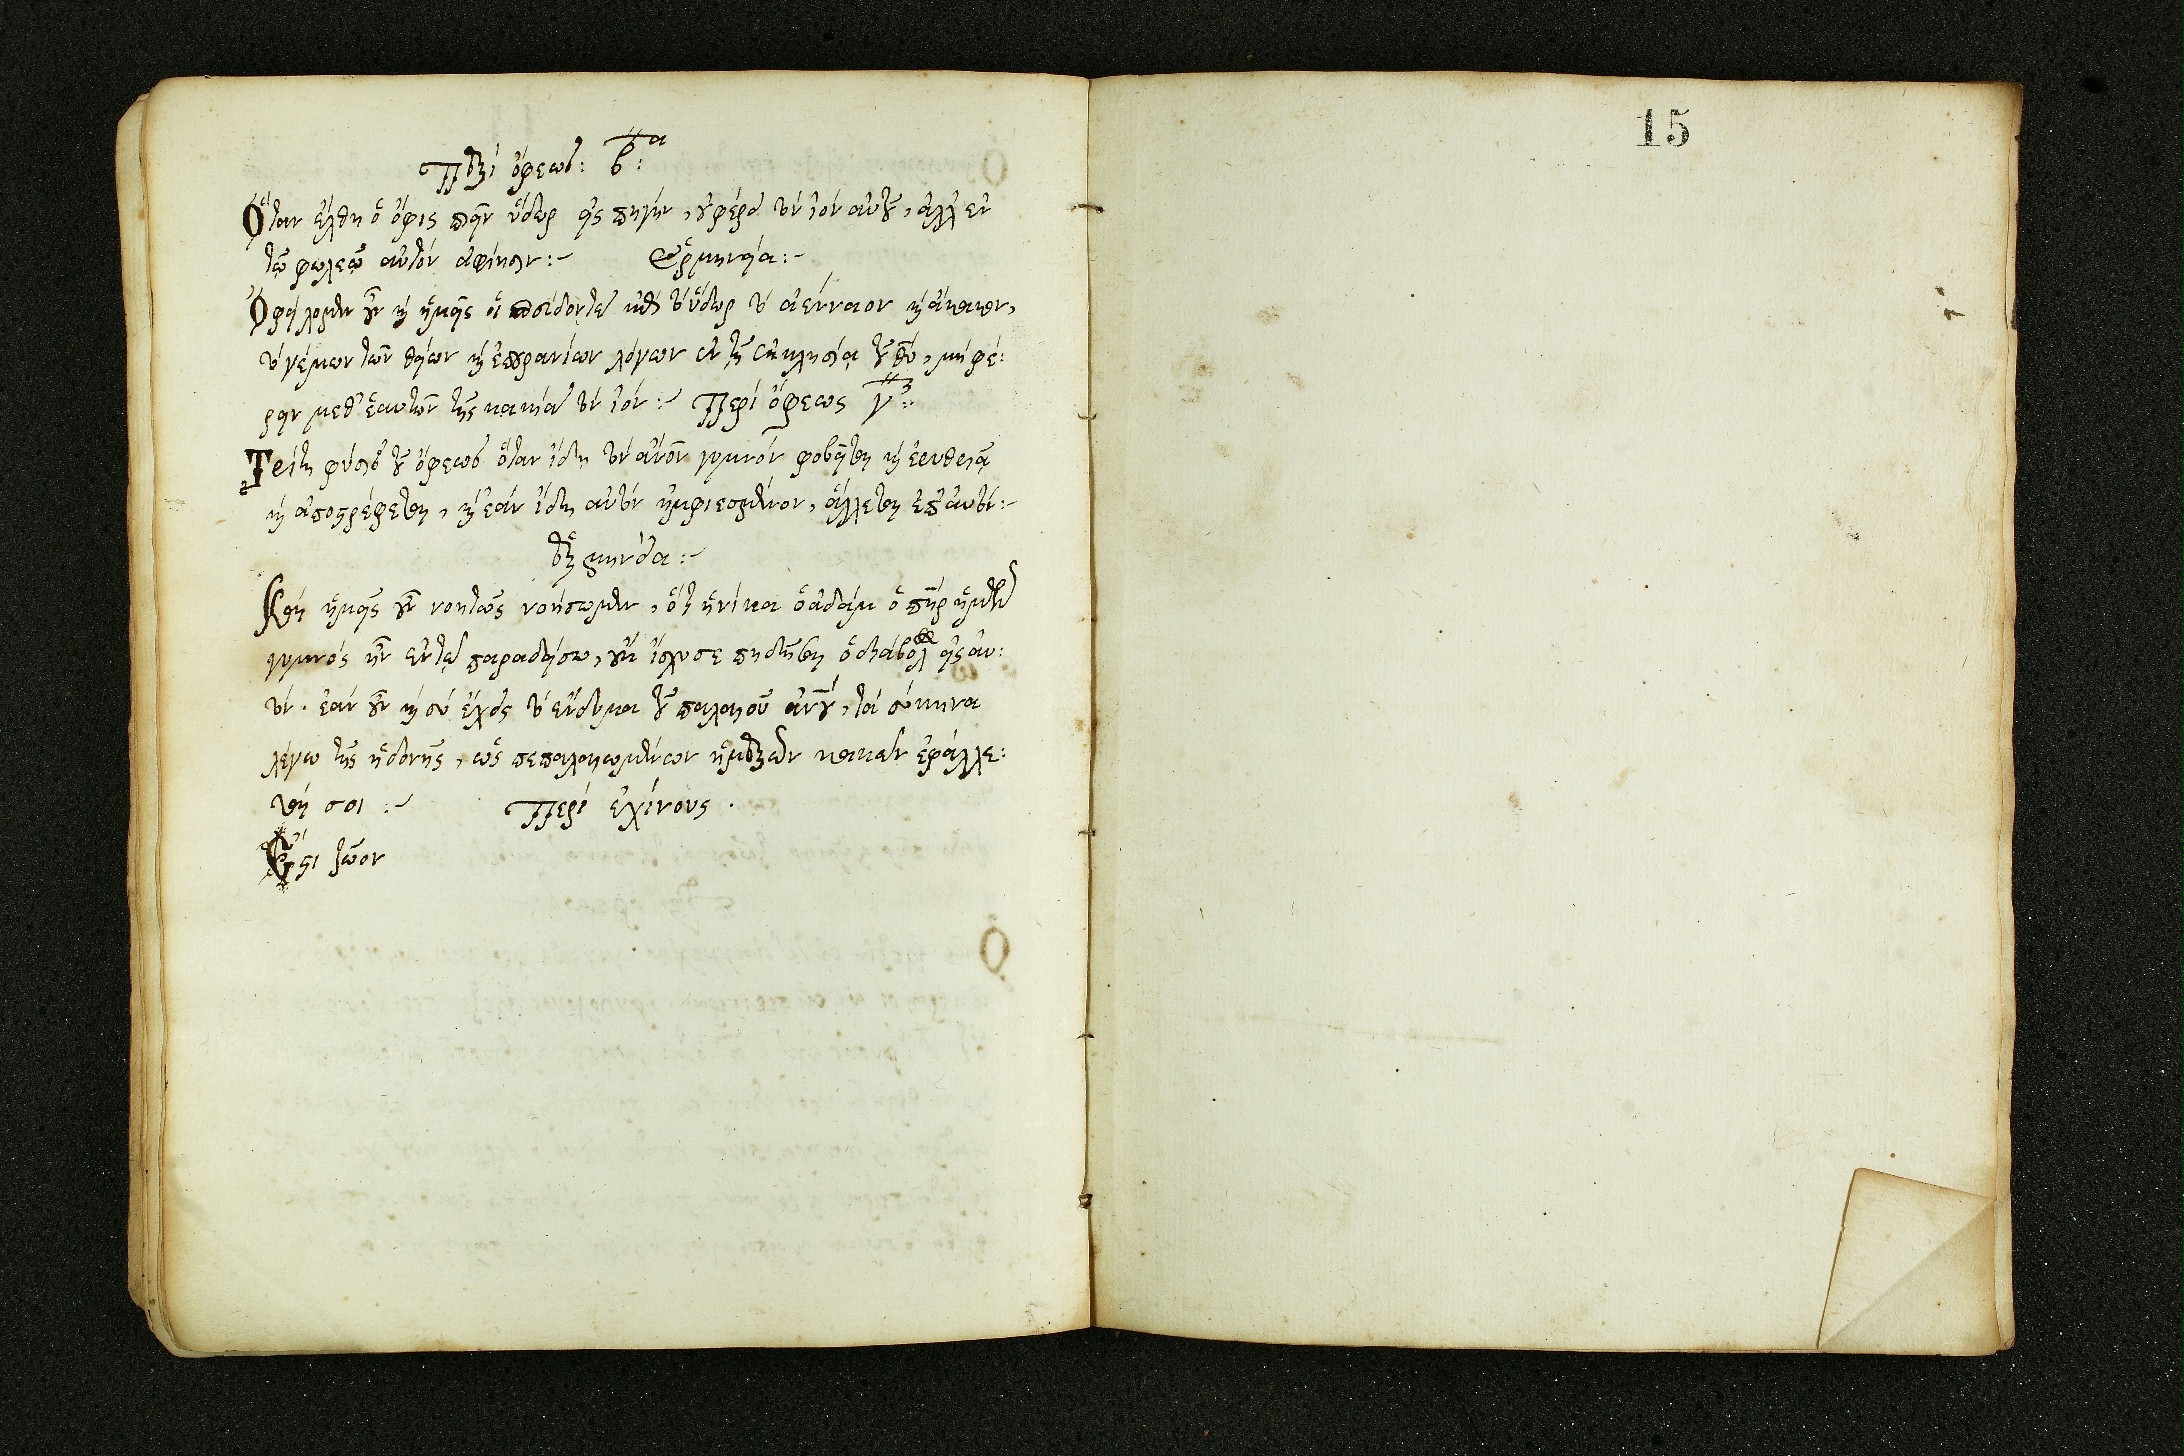 Περὶ ὄφεως: β:α
Ὅταν ἔλθη ὁ ὄφις πιεῖν ὕδωρ εἰς πηγήν, οὐ φέρει τὸν ἰὸν αὐτοῦ, ἀλλ' ἐν
τῷ φωλεῷ αὐτὸν ἀφίησιν:~ Ἑρμηνεία:~
Ὀφείλομεν οὖν καὶ ἡμεῖς οἱ τὸ ὕδωρ τὸ ἀένναον καὶ
τὸ γέμων τῶν θείων καὶ ἐπουρανίων λόγων ἐν τῇ ἐκκλησίᾳ τοῦ θυ, μὴ φέ:
ρειν μεθ' ἑαυτῶν τῆς κακίας τὸν ἰόν:~ Περὶ ὄφεως γ:
Τρίτη φύσις τοῦ ὄφεως ὅταν ἴδη τὸν ἄνον γυμνὸν φοβεῖται καὶ
καὶ ἀποστρέφεται, καὶ ἐὰν ἴδη αὐτὸν ἠμφιεσμένον, ἅλλεται ἐπ' αὐτόν:~
ἑρμηνεία:~
Καὶ ἡμεῖς οὖν νοητῶς νοήσωμεν, ὅτι ἡνίκα ὁ ἀδὰμ ὁ πηρ ἡμῶν
γυμνὸς ἦν ἐν τῷ παραδείσω, οὐκ ἴσχυσε πηδῆσαι ὁ διάβολος εἰς αὐ:
τόν. ἐὰν οὖν καὶ σὺ ἔχεις τὸ ἔνδυμα τοῦ παλαιοῦ ἀνου, τὰ σύκινα
λέγω τῆς ἡδονῆς, ὡς πεπαλαιωμένων ἡμερῶν κακῶν ἐφάλλε:
ται σοι:~ Περὶ ἐχίνους.
Ἔστι ζῶον
15